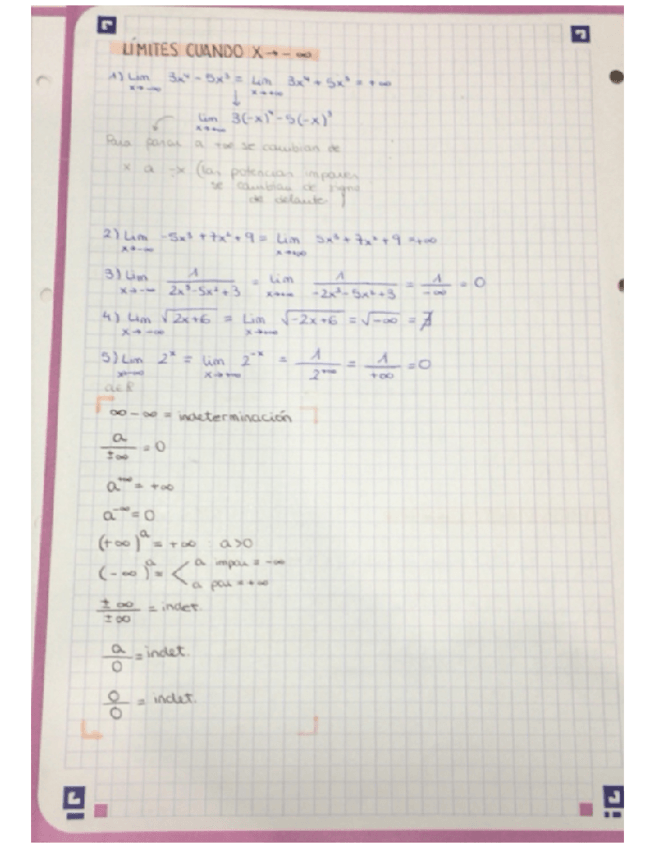 LÍMITES CUANDO X→-∞
1) Lim x→-∞ 3x⁴ - 5x³ = Lim x→+∞ 3x⁴ + 5x³ = +∞
↓
Lim x→+∞ 3(-x)⁴ - 5(-x)³
Para pasar a +∞ se cambian de
x a -x (las potencias impares
se cambian de signo
de delante)
2) Lim x→-∞ -5x³ + 7x² + 9 = Lim x→+∞ 5x³ + 7x² + 9 = +∞
3) Lim x→-∞ 1/(2x³-5x²+3) = Lim x→+∞ 1/(-2x³-5x²+3) = 1/-∞ = 0
4.) Lim x→-∞ √(2x+6) = Lim x→+∞ √(-2x+6) = √(-∞) = ∄
5) Lim x→-∞ 2ˣ = Lim x→+∞ 2⁻ˣ = 1/2^(+∞) = 1/+∞ = 0
a∈R
∞ - ∞ = indeterminación
a/±∞ = 0
a^(+∞) = +∞
a^(-∞) = 0
(+∞)^a = +∞ a>0
(-∞)^a = < a impar = -∞
a par = +∞
±∞/±∞ = indet.
a/0 = indet.
0/0 = indet.